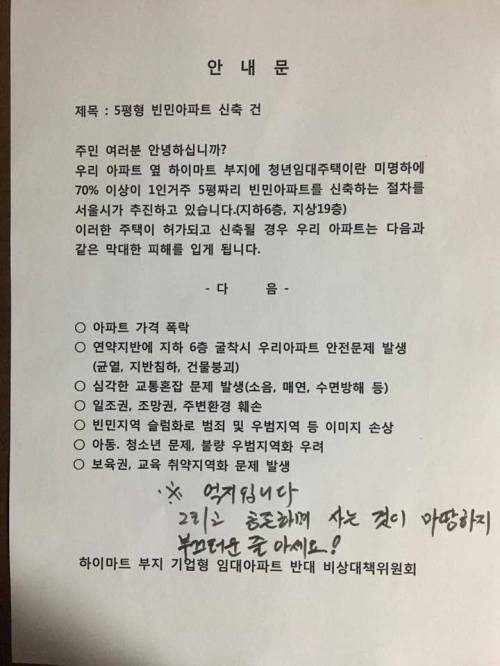 안 내 문
제목 : 5평형 빈민아파트 신축 건
주민 여러분 안녕하십니까?
우리 아파트 옆 하이마트 부지에 청년임대주택이란 미명하에
70% 이상이 1인거주 5평짜리 빈민아파트를 신축하는 절차를
서울시가 추진하고 있습니다.(지하6층, 지상19층)
이러한 주택이 허가되고 신축될 경우 우리 아파트는 다음과
같은 막대한 피해를 입게 됩니다.
- 다 음 -
○ 아파트 가격 폭락
○ 연약지반에 지하 6층 굴착시 우리아파트 안전문제 발생
(균열, 지반침하, 건물붕괴)
○ 심각한 교통혼잡 문제 발생(소음, 매연, 수면방해 등)
○ 일조권, 조망권, 주변환경 훼손
○ 빈민지역 슬럼화로 범죄 및 우범지역 등 이미지 손상
○ 아동. 청소년 문제, 불량 우범지역화 우려
○ 보육권, 교육 취약지역화 문제 발생
※ 억지입니다
그리고 사는 것이 마땅하지
부끄러운 줄 아세요!
하이마트 부지 기업형 임대아파트 반대 비상대책위원회